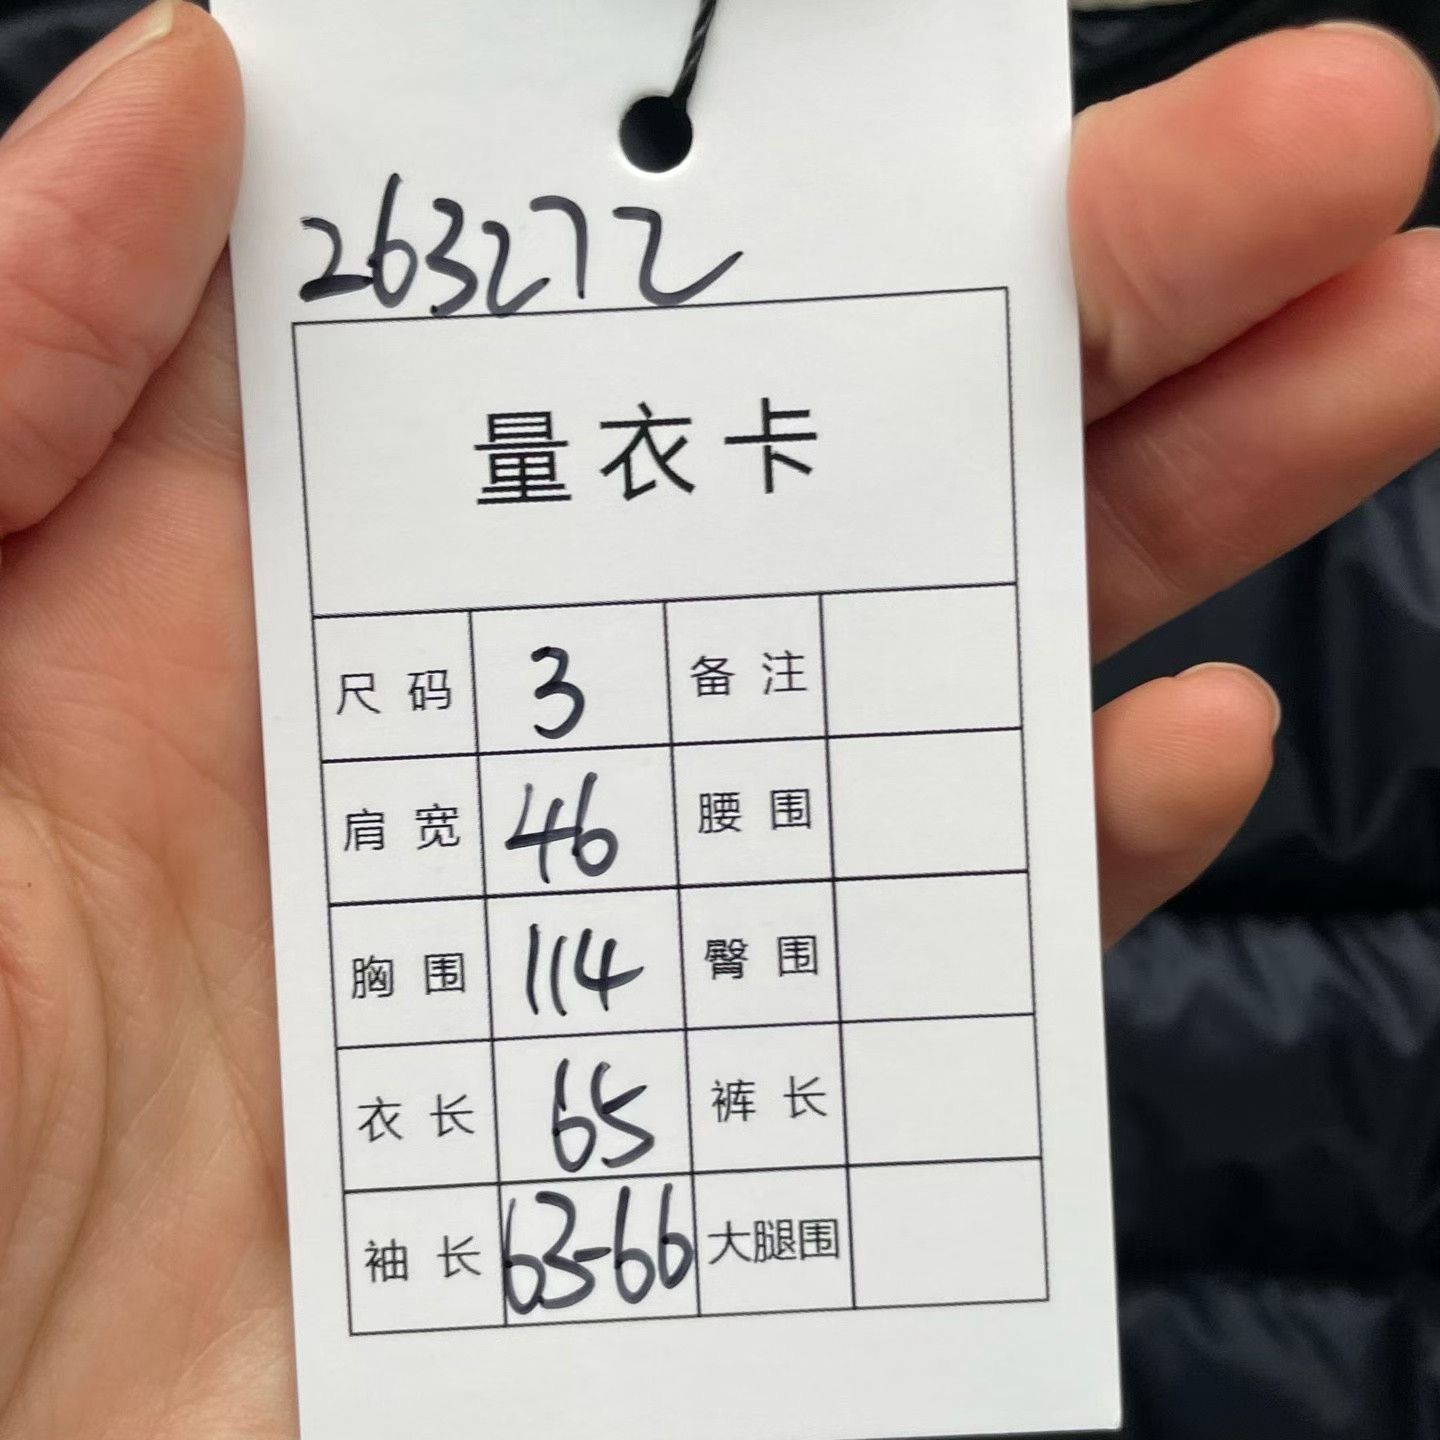 263272
量衣卡
尺码 3 备注
肩宽 46 腰围
胸围 114 臀围
衣长 65 裤长
袖长 63-66 大腿围